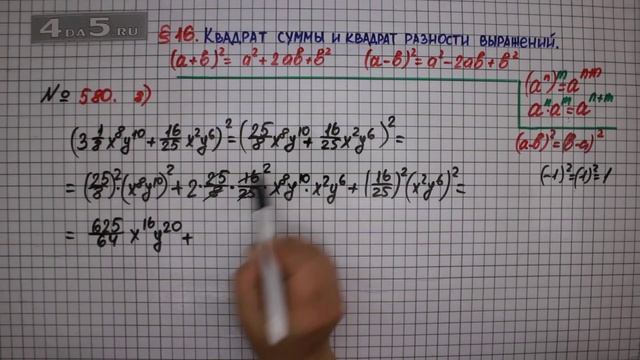 4DA5.RU
§16. Квадрат суммы и квадрат разности выражений.
(a+b)²= a²+2ab+b² (a-b)²=a²-2ab+b²
(aⁿ)ᵐ=aⁿ*ᵐ
aⁿ·aᵐ=aⁿ⁺ᵐ
№ 580.
(a-b)²=(b-a)²
(3 1/8 x⁸y¹⁰ + 16/25 x²y⁶)² = (25/8 x⁸y¹⁰ + 16/25 x²y⁶)² =
(-1)²=(-1)²=1
= (25/8)²·(x⁸y¹⁰)² + 2· 25/8 · 16/25 ² x⁸y¹⁰·x²y⁶ + (16/25)²(x²y⁶)² =
= 625/64 x¹⁶y²⁰ +